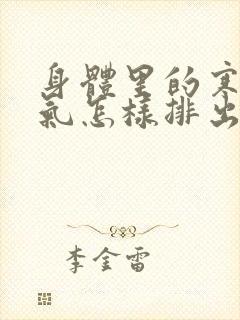 身體里的寒
氣怎樣排出
李金雷